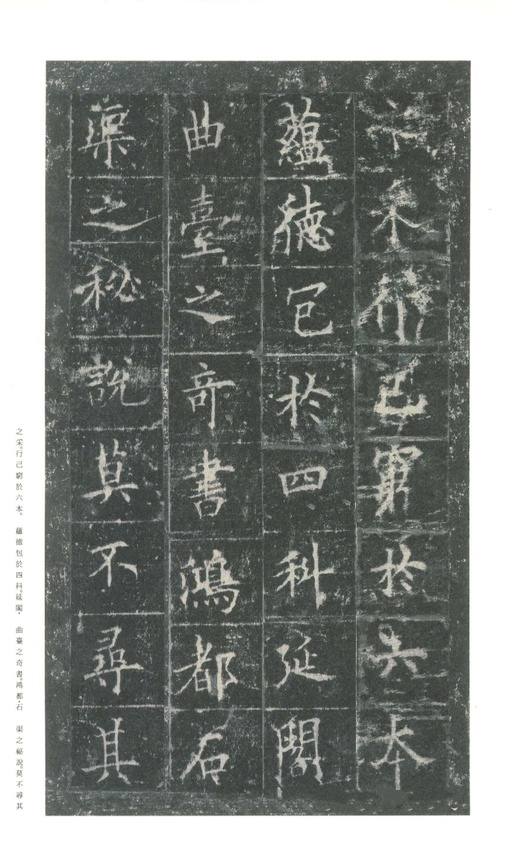 之采行己窮於六本
蘊德包於四科延閣
曲臺之奇書鴻都石
渠之秘說莫不尋其
之采。行己窮於六本。 蘊德包於四科。延閣、 曲臺之奇書。鴻都、石 渠之祕說。莫不尋其